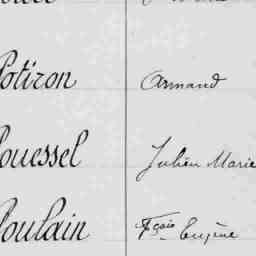 Potiron Armand
Pouessel Julien Marie
Poulain Fçois Eugène